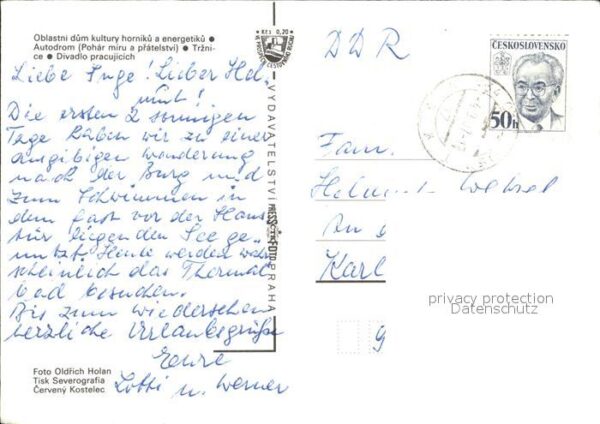 Oblastní dům kultury horníků a energetiků •
Autodrom (Pohár míru a přátelství) • Tržni-
ce • Divadlo pracujících
Kčs 0,20
Liebe Inge! Lieber Hel-
mut!
Die ersten 2 sonnigen
Tage haben wir zu einer
ausgibigen Wanderung
nach der Burg und
zum Schwimmen in
dem fast vor der Haus-
tür liegenden See ge-
nutzt. Heute werden wahr-
scheinlich das Thermal-
bad besuchen.
Bis zum wiedersehen
herzliche Urlaubsgrüße
Eure
Lotti u. Werner
Foto Oldřich Holan
Tisk Severografia
Červený Kostelec
VYDAVATELSTVÍ PRESSFOTO PRAHA
DDR
ČESKOSLOVENSKO
50h
Fam.
Helmut
An d
Karl
9
privacy protection
Datenschutz